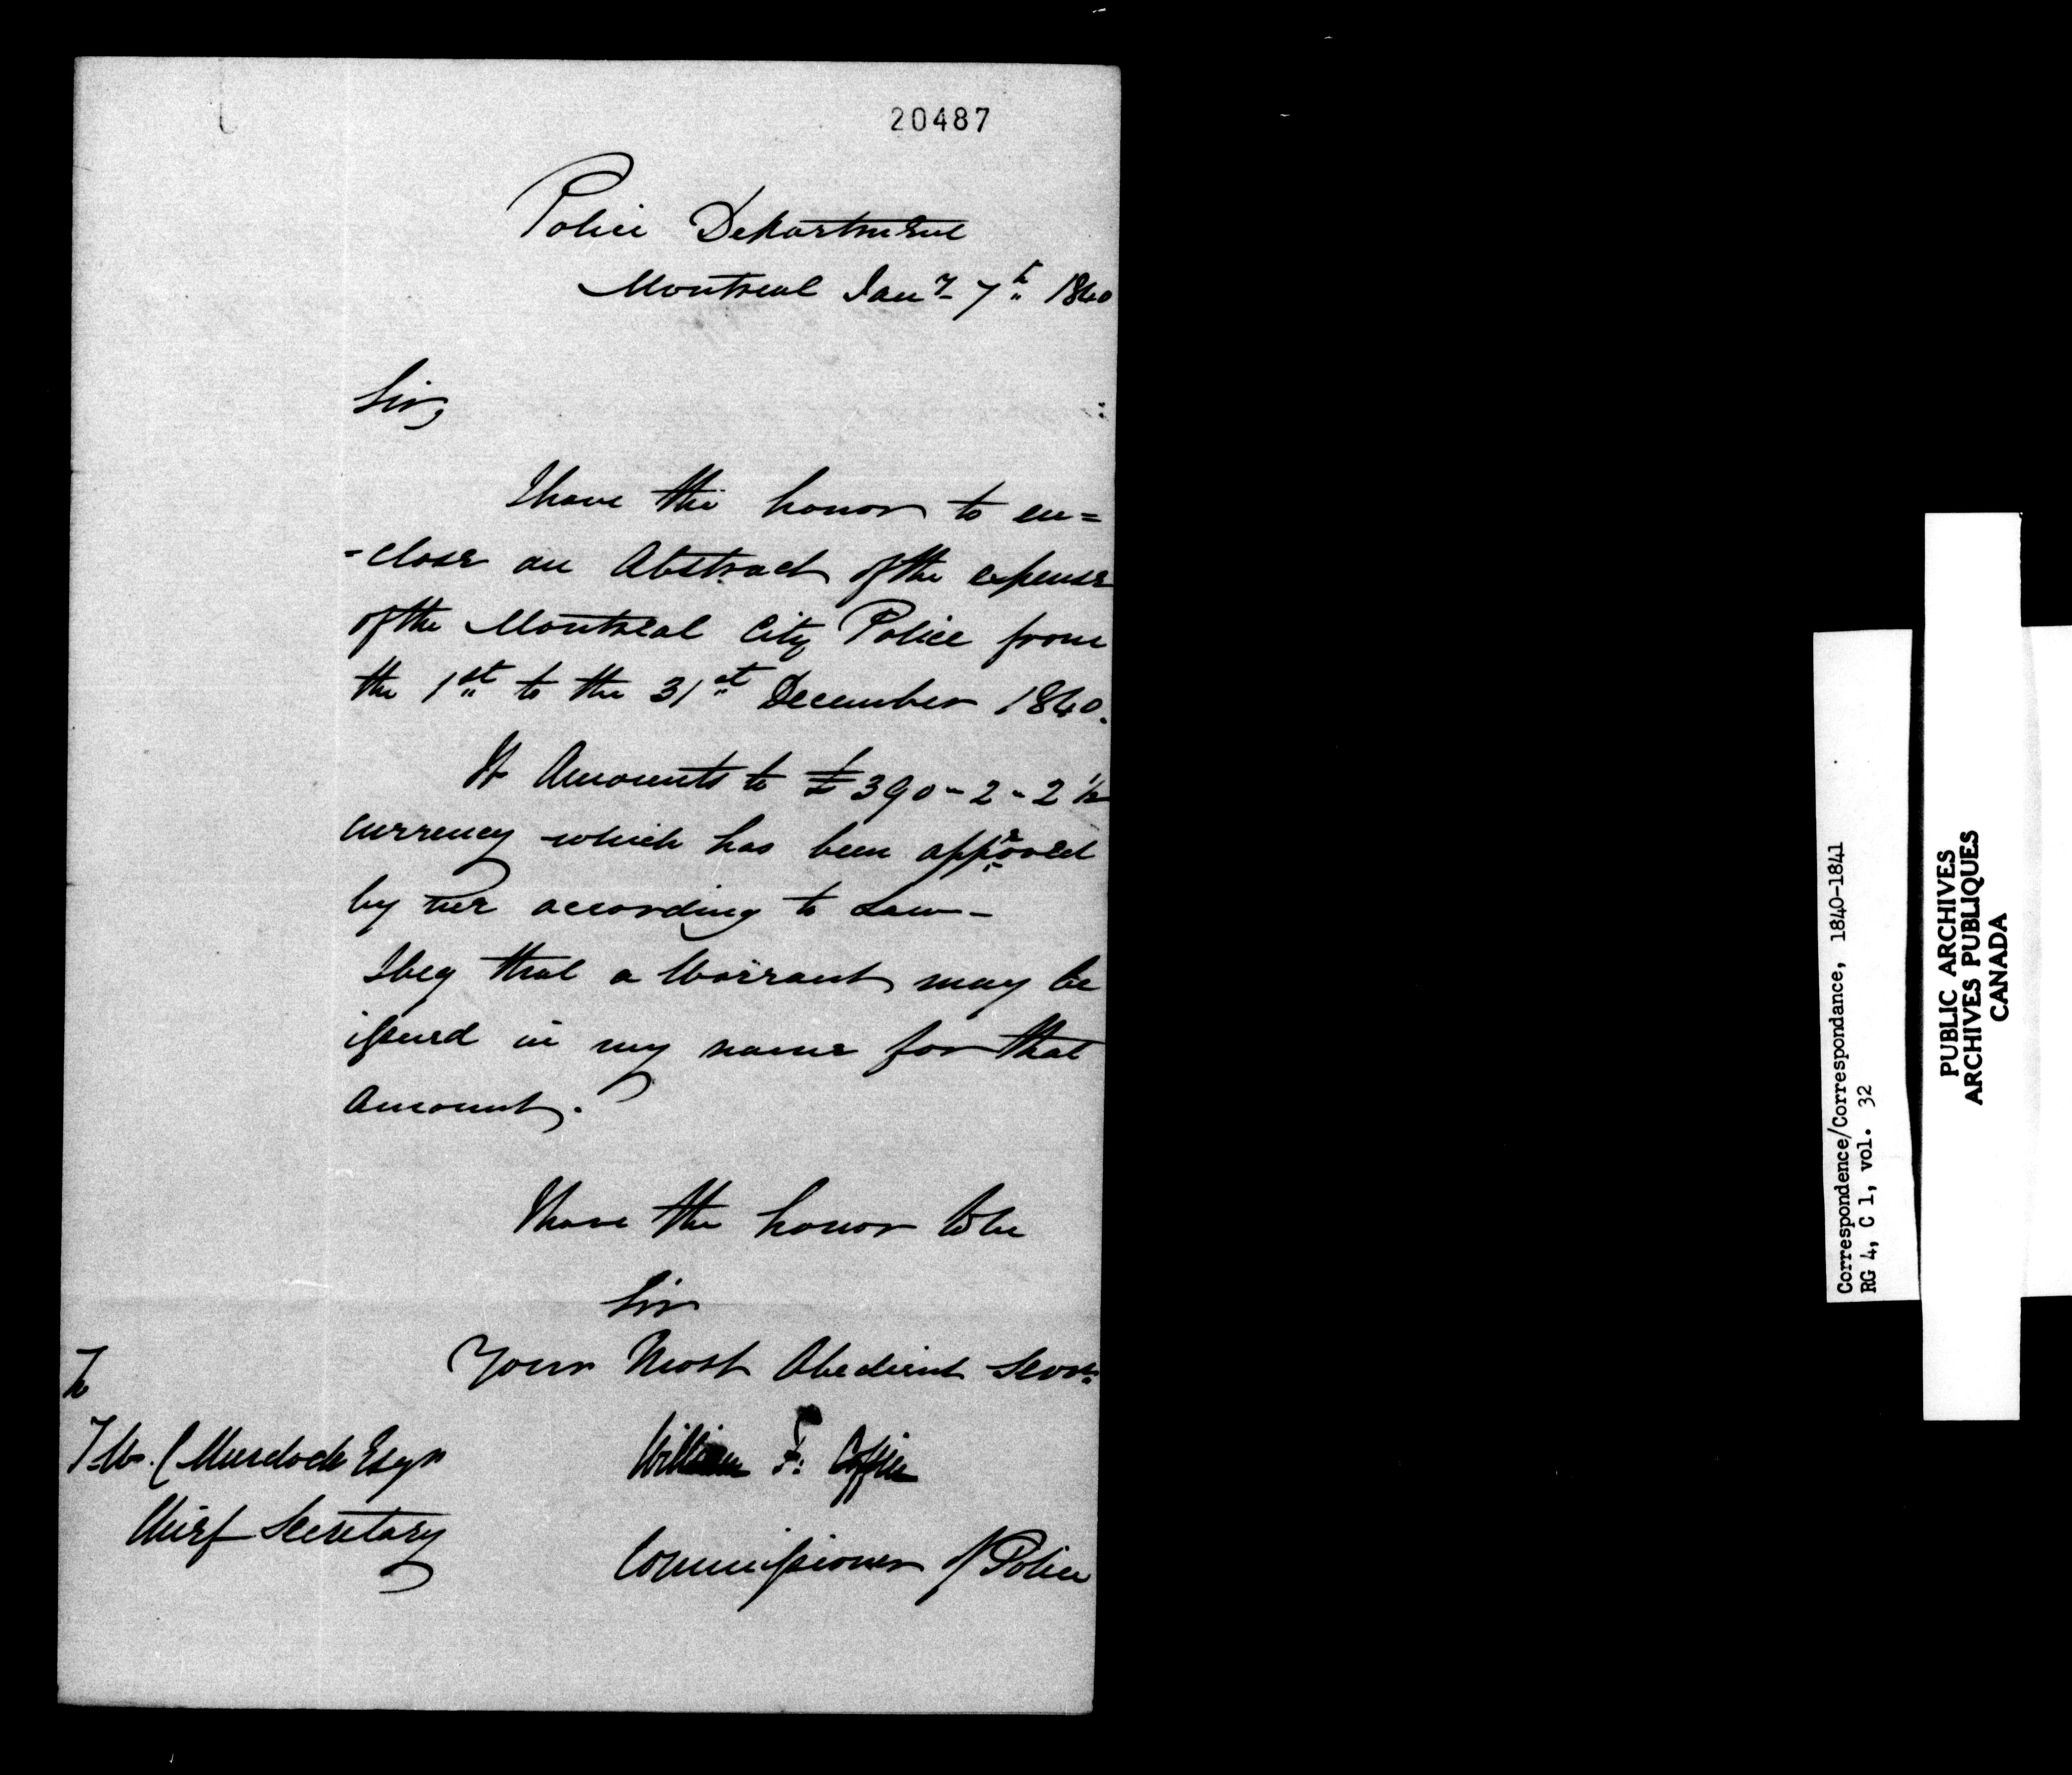 20487
Police Department
Montreal Jany 7th 1840
Sir,
I have the honor to en=
-close an Abstract of the expense
of the Montreal City Police from
the 1st to the 31st December 1840.
It Amounts to £390-2-2½
currency which has been approved
by me according to Law-
I beg that a Warrant may be
issued in my name for that
Amount.
I have the honor to be
Sir
Your Most Obedient Servt
William F. Coffin
Commissioner of Police
To
T.W.C Murdoch Esqr
Chief Secretary
Correspondence/Correspondance, 1840-1841
RG 4, C 1, vol. 32
PUBLIC ARCHIVES
ARCHIVES PUBLIQUES
CANADA